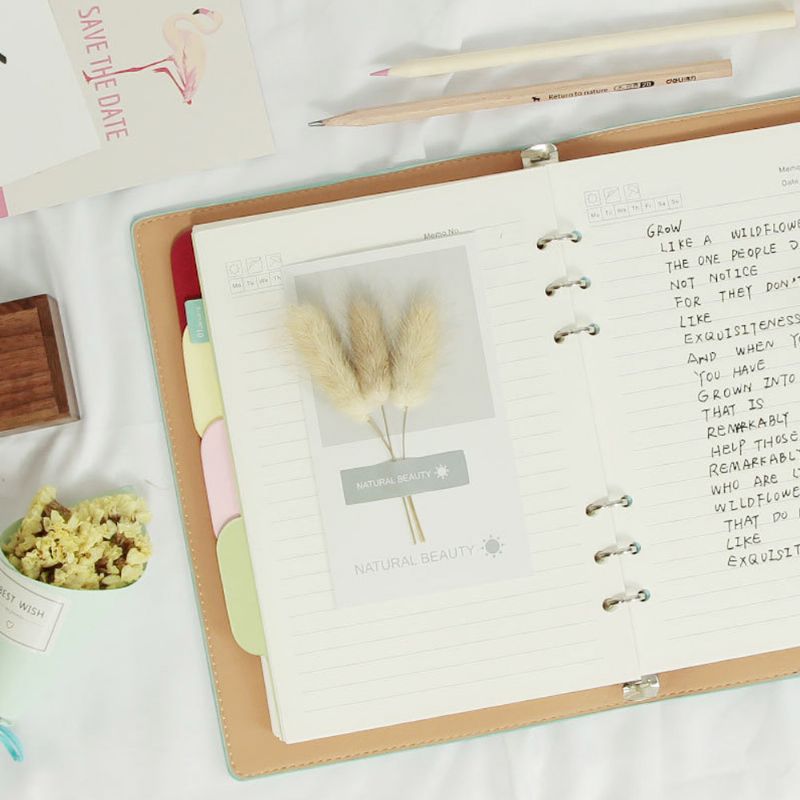 SAVE THE DATE
Return to nature 2B deli
Memo No.
Mo Tu We Th
01
NATURAL BEAUTY
NATURAL BEAUTY
BEST WISH
Memo
Date
Mo Tu We Th Fr Sa Su
GROW
LIKE A WILDFLOWE
THE ONE PEOPLE D
NOT NOTICE
FOR THEY DON'T
LIKE
EXQUISITENESS
AND WHEN YO
YOU HAVE
GROWN INTO
THAT IS
REMARKABLY
HELP THOSE
REMARKABLY
WHO ARE
WILDFLOWE
THAT DO
LIKE
EXQUISIT